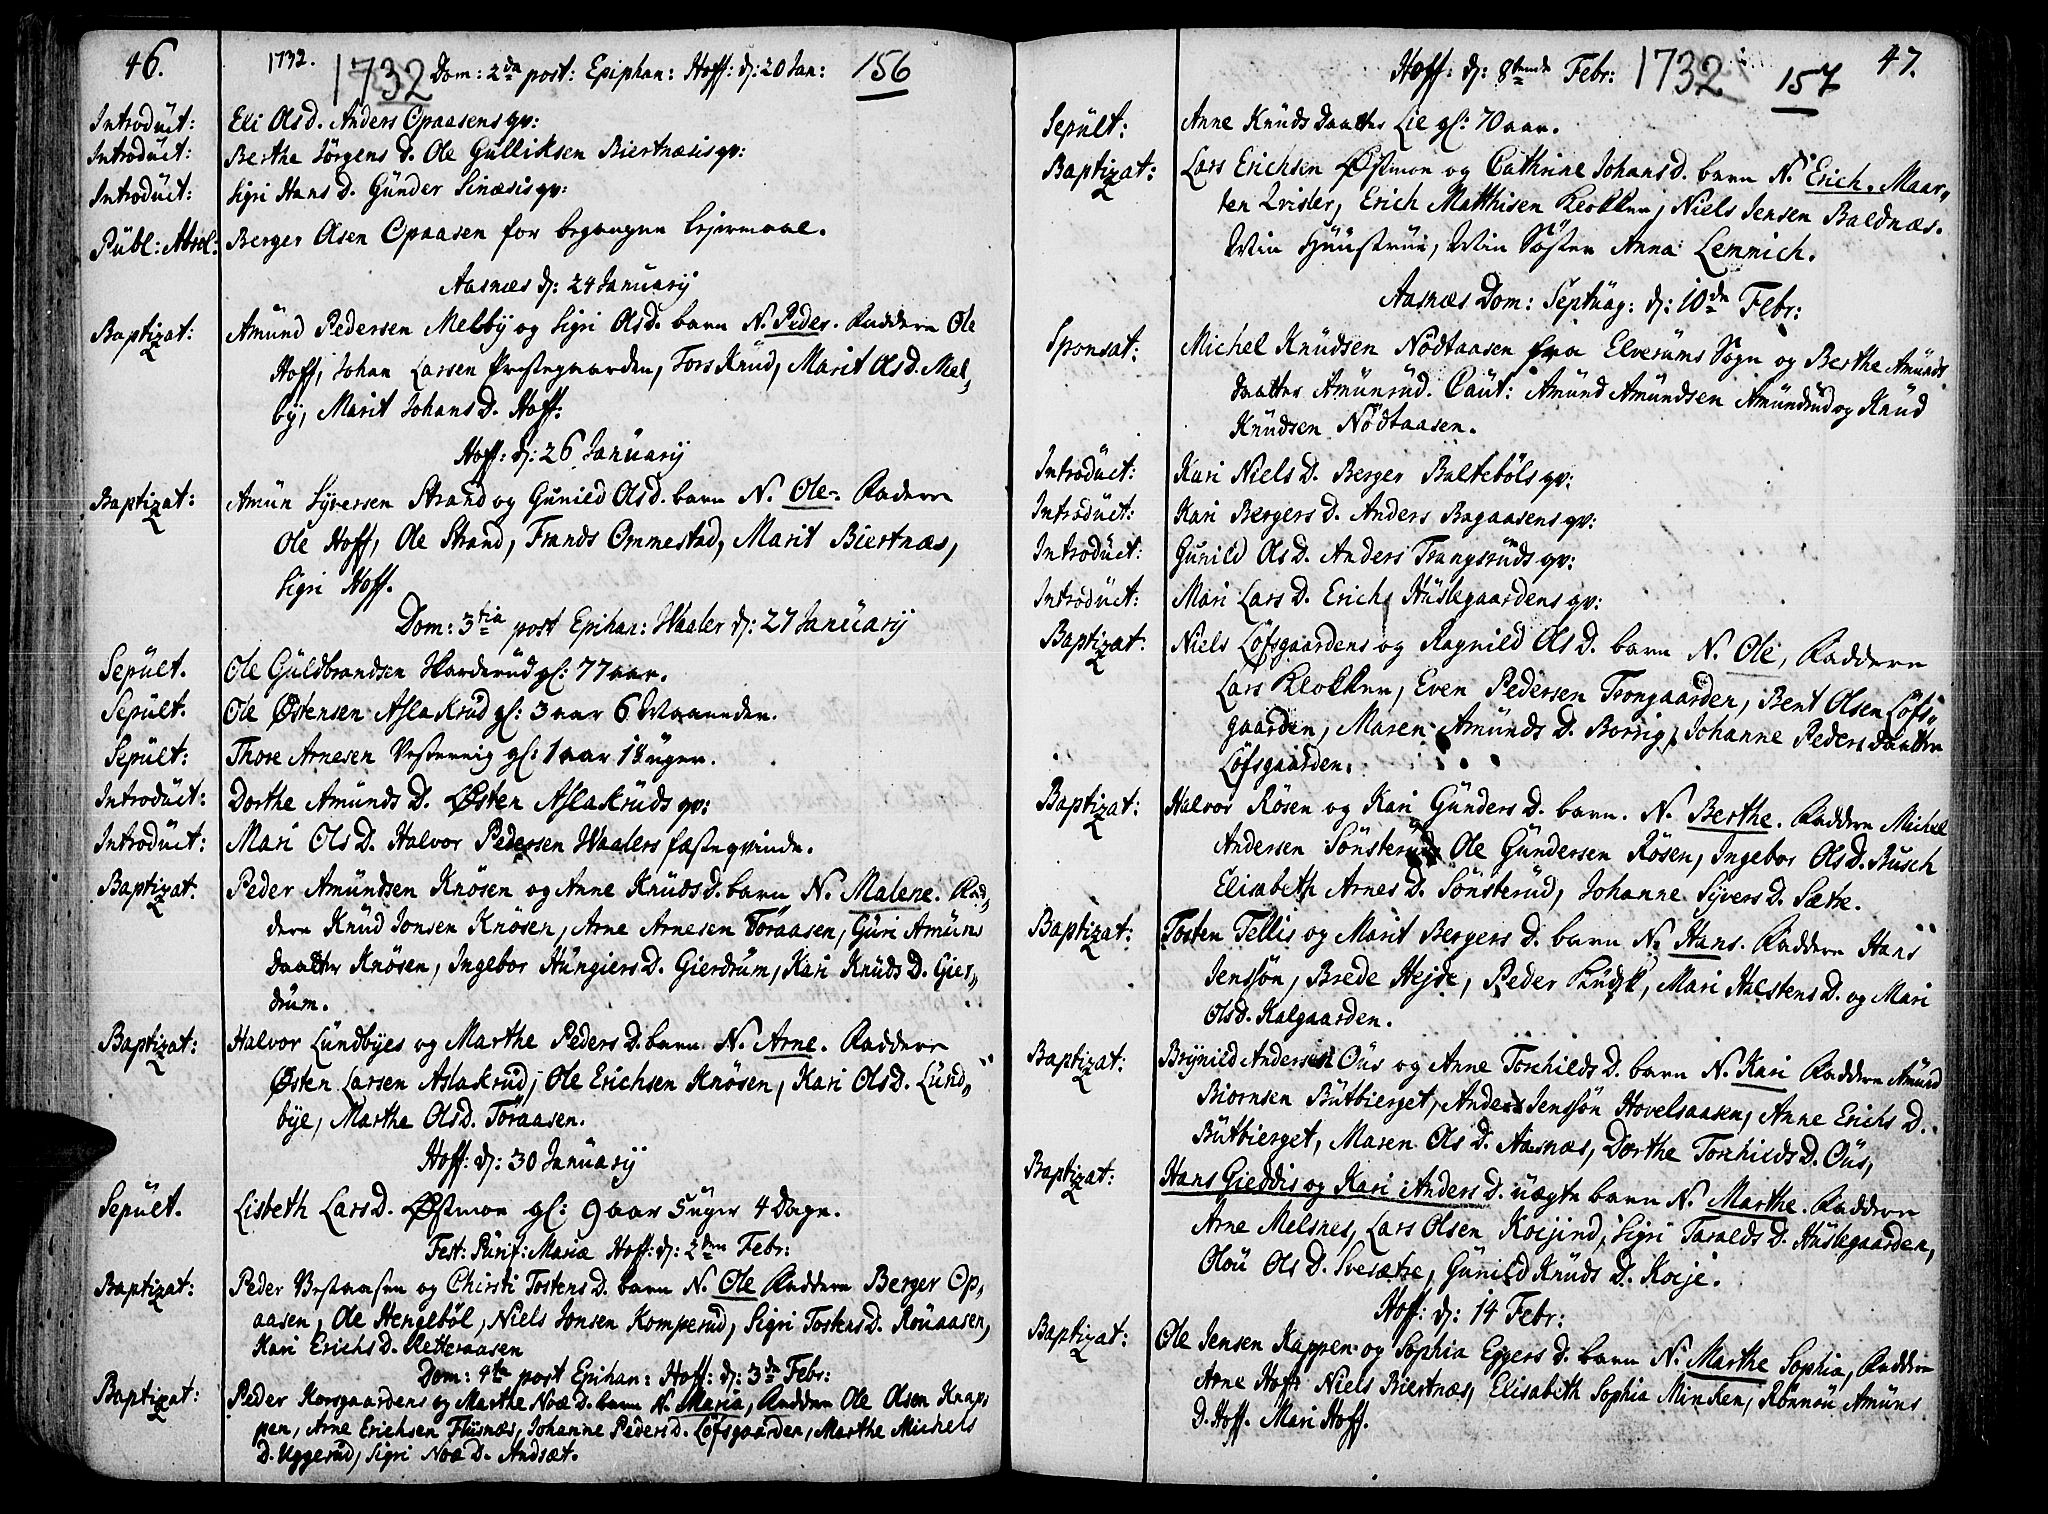 46.
1732. 1732 Dom: 2da post: Epiphan: Hoff: d: 20 Jan: 156
Introduct: Eli Olsd. Anders Opaasens qv:
Introduct: Berthe Jörgens d. Ole Gulliksen Biertnæsis qv:
Introduct: Sigri Hans d. Gunder Sinæsis qv:
Publ: Absol: Berger Olsen Opaasen for begangne Lejermaal.
Aasnæs d: 24 Januarij
Baptizat: Amund Pedersen Melby og Sigri Olsd. barn N. Peder. Faddere Ole
Hoff, Johan Larsen Præstegaarden, Fors Knud, Marit Olsd. Mel,
by, Marit Johans D. Hoff.
Hoff: d: 26 Januarij
Baptizat: Amun Syversen Strand og Gunild Olsd. barn N. Ole. Faddere
Ole Hoff, Ole Strand, Frands Ommestad, Marit Biertnæs,
Sigri Hoff.
Dom: 3tia post Epihan: Waaler d: 27 Januarij
Sepult. Ole Guldbrandsen Harderud gl: 77 aar.
Sepult. Ole Østensen Aslakrud gl: 3 aar 6 Maaneder.
Sepult: Thore Arnesen Vestenvig gl: 1 aar 18 uger.
Introduct: Dorthe Amunds D. Østen Aslakruds qv:
Introduct: Mari Ols D. Halvor Pedersen Waalers fæsteqvinde.
Baptizat: Peder Amundsen Knösen og Anne Knuds d. barn N. Malene. Fad,
dere Knud Jonsen Knösen, Arne Arnesen Töraasen, Guri Amuns
daatter Knösen, Ingebor Hungiers D. Gierdrum, Kari Knuds D. Gier,
drum.
Baptizat: Halvor Lundbyes og Marthe Peders D. barn N. Arne. Faddere
Østen Larsen Aslakrud, Ole Erichsen Knösen, Kari Olsd. Lund,
bye, Marthe Olsd. Töraasen.
Hoff: d: 30 Januarij
Sepult. Lisbeth Lars D. Østmoe gl: 9 aar 5 uger 4 Dage.
Fest: Purif: Mariæ Hoff: d: 2den Febr:
Baptizat: Peder Vestaasen og Chirsti Tostens D. barn N. Ole Faddere Berger Op,
aasen, Ole Hengeböl, Niels Jonsen Komperud, Sigri Tostens D. Rouaasen,
Kari Erichs D. Retteraasen
Dom: 4ta post Epihan: Hoff: d: 3de Febr:
Baptizat: Peder Korsgaardens og Marthe Noæ D. barn N. Maria, Faddere Ole Olsen Knap,
pen, Arne Erichsen Flisnæs, Johanne Peders D. Löfsgaarden, Marthe Michels
D. Uggerud, Sigri Noæ D. Andsæt.
Hoff: d: 8tende Febr: 1732 157 47.
Sepult: Anne Knuds daatter Lie gl: 70 aar.
Baptizat: Lars Erichsen Østmoe og Cathrine Johans D. barn N. Erich. Maar,
ten Qvisler, Erich Matthisen Klokker, Niels Jensen Baldnæs.
Min Huustrue, Min Söster Anna Lemmich.
Aasnæs Dom: Septuag: d: 10de Febr:
Sponsat: Michel Knudsen Nödtaasen fra Elverums Sogn og Berthe Amunds
daatter Amunrud. Caut: Amund Amundsen Amundrud og Knud
Knudsen Nödtaasen.
Introduct: Kari Niels D. Berger Balteböls qv:
Introduct: Kari Bergers D. Anders Bagaasens qv:
Introduct: Gunild Ols D. Anders Trangsruds qv:
Introduct: Mari Lars D. Erichs Huslegaardens qv:
Baptizat: Niels Löfsgaardens og Ragnild Ols D. barn N. Ole, Faddere
Lars Klokker, Even Pedersen Trongaarden, Bent Olsen Löfs,
gaarden, Maren Amunds D. Borrig, Johanne Peders daatter
Löfsgaarden.
Baptizat: Halvor Rösen og Kari Gunders D. barn. N. Berthe. Faddere Michel
Andersen Sönsterud, Ole Gundersen Rösen, Ingebor Olsd. Busch
Elisabeth Arnes D. Sönsterud, Johanne Syvers D. Sætre.
Baptizat: Tosten Tellis og Marit Bergers D. barn N. Hans. Faddere Hans
Jenssön, Brede Hejde, Peder Kudsk, Mari Halstens D. og Mari
Olsd. Kalgaarden.
Baptizat: Brynild Andersen Ous og Anne Torchilds D. barn N. Kari Faddere Amund
Biornsen Butbierget, Anders Jenssön Hovelsaasen, Anne Erichs D.
Butbierget, Maren Ols D. Aasnæs, Dorthe Torchilds D. Ous,
Baptizat: Hans Gieddis og Kari Anders D. uægte barn N. Marthe. Faddere
Arne Melsnes, Lars Olsen Koijind, Sigri Taralds D. Huslegaarden,
Olou Ols D. Svesætre, Gunild Knuds D. Koije.
Hoff: d: 14 Febr:
Baptizat: Ole Jensen Kappen og Sophia Eggers D. barn N. Marthe Sophia, Faddere
Arne Hoff, Niels Biertnæs, Elisabeth Sophia Mincken, Rönnou Amuns
D. Hoff. Mari Hoff.